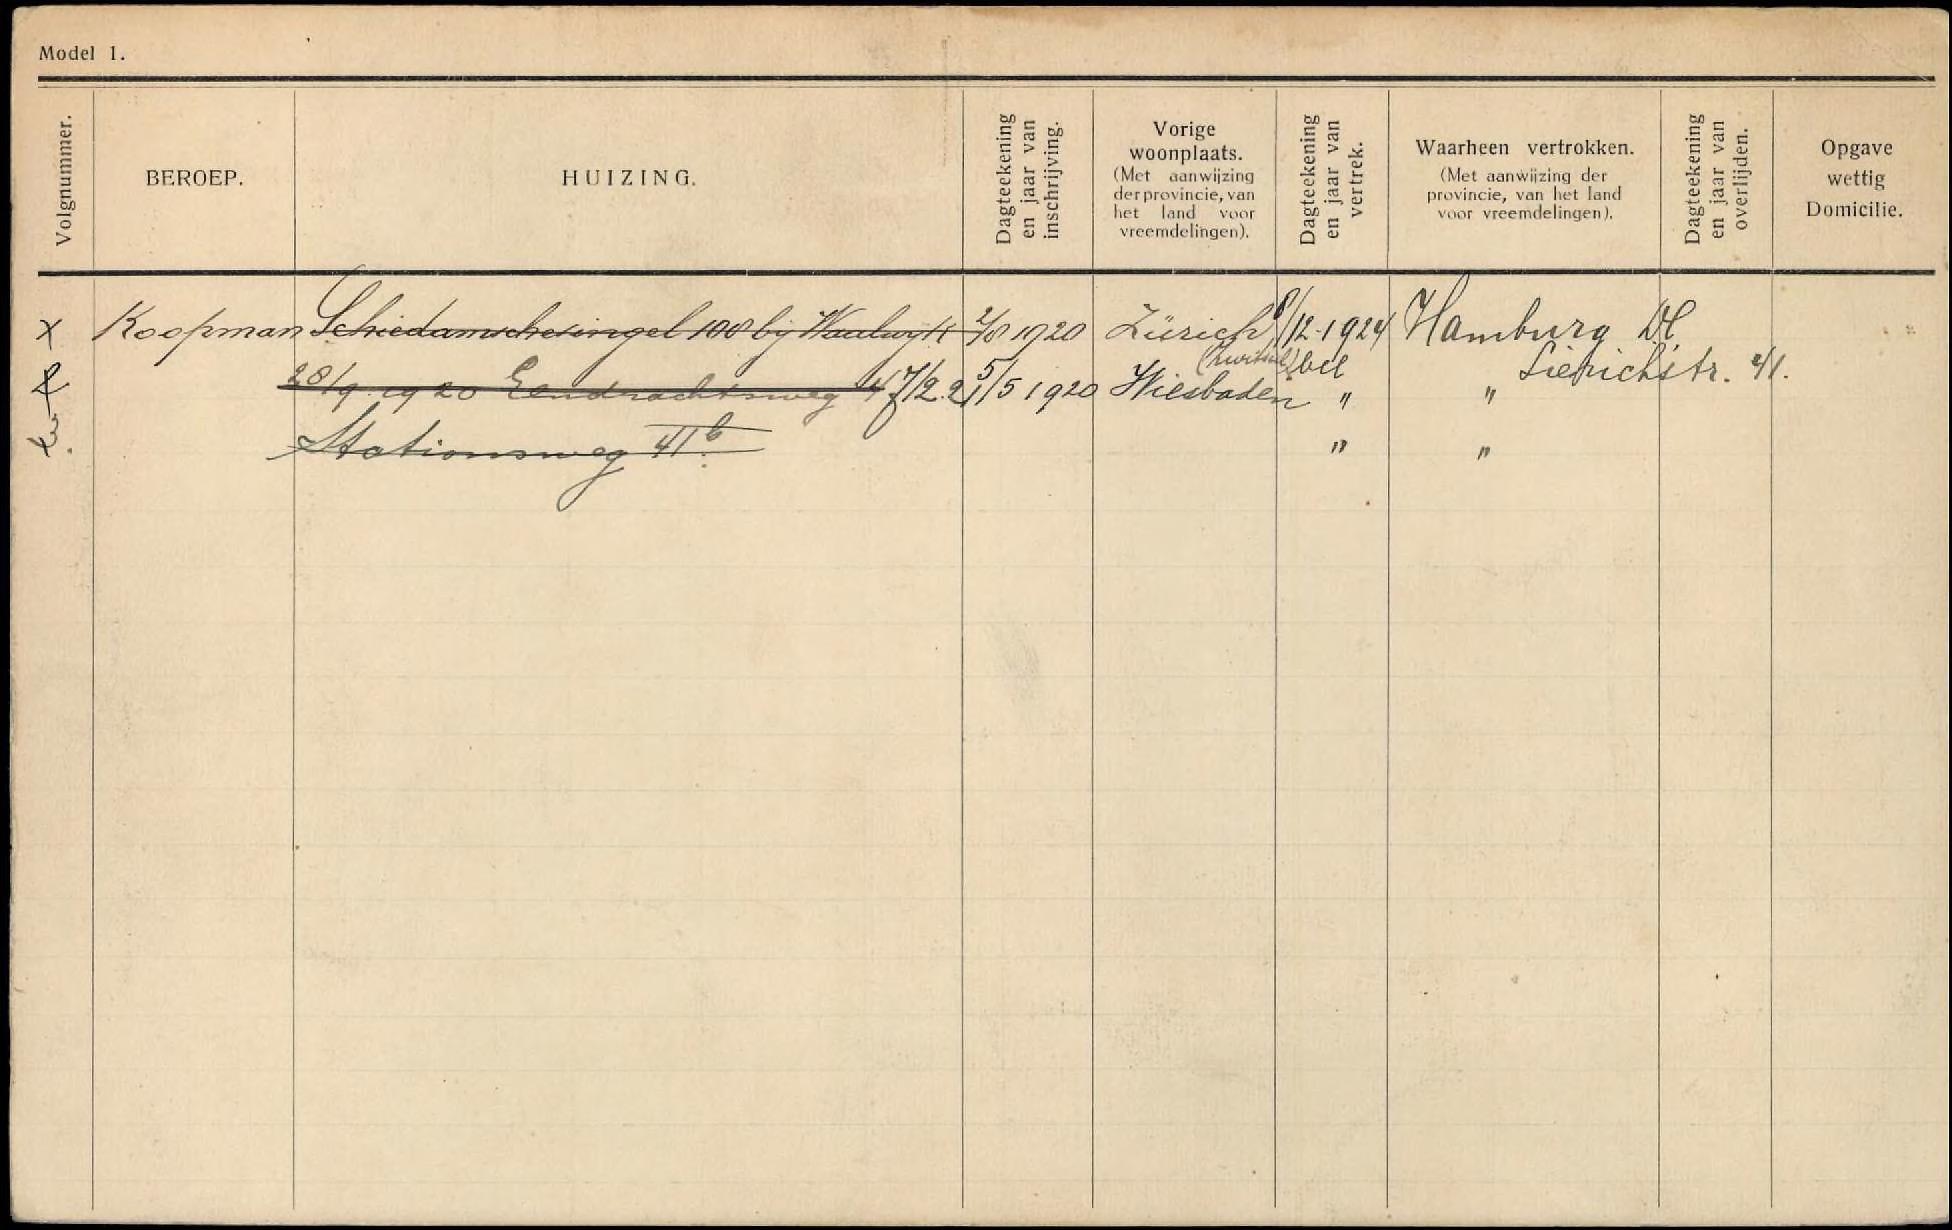 Model 1.
Volgnummer.
BEROEP.
HUIZING.
Dagteekening
en jaar van
inschrijving.
Vorige
woonplaats.
(Met aanwijzing
der provincie, van
het land voor
vreemdelingen).
Dagteekening
en jaar van
vertrek.
Waarheen vertrokken.
(Met aanwijzing der
provincie, van het land
voor vreemdelingen).
Dagteekening
en jaar van
overlijden.
Opgave
wettig
Domicilie.
x Koopman Schiedamschesingel 108 bij Waalwijk 2/8 1920 Zürich 8/12-1924 Hamburg
28/9 1920 Eendrachtsweg 7/2 21 5/5 1920 Wiesbaden " " Sierichstr. 41.
Stationsweg 41b. " "